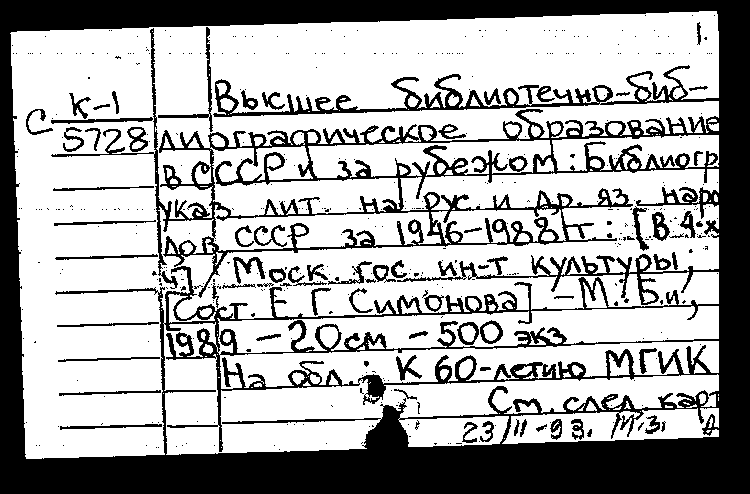 1.
К-1 Высшее библиотечно-биб-
С 5728 лиографическое образование
в СССР и за рубежом: Библиогр
указ. лит. на рус. и др. яз. наро
дов СССР за 1946-1988 гг.: [В 4-х
ч.] / Моск. гос. ин-т культуры;
[Сост. Е. Г. Симонова] - М.: Б.и.,
1989. - 20см. - 500 экз.
На обл.: К 60-летию МГИК
См. след. карт
23/II-93. М.З.